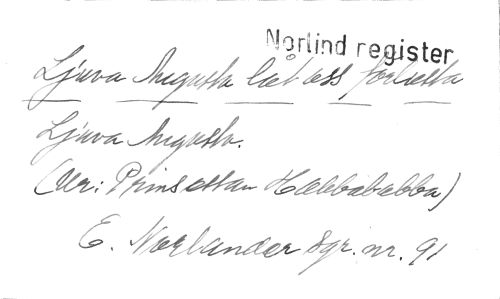 Norlind register
Ljuva Augusta låt oss förlusta
Ljuva Augusta.
(Ur: Prinsessan Habbababba)
E. Norlander Sgr. nr. 91